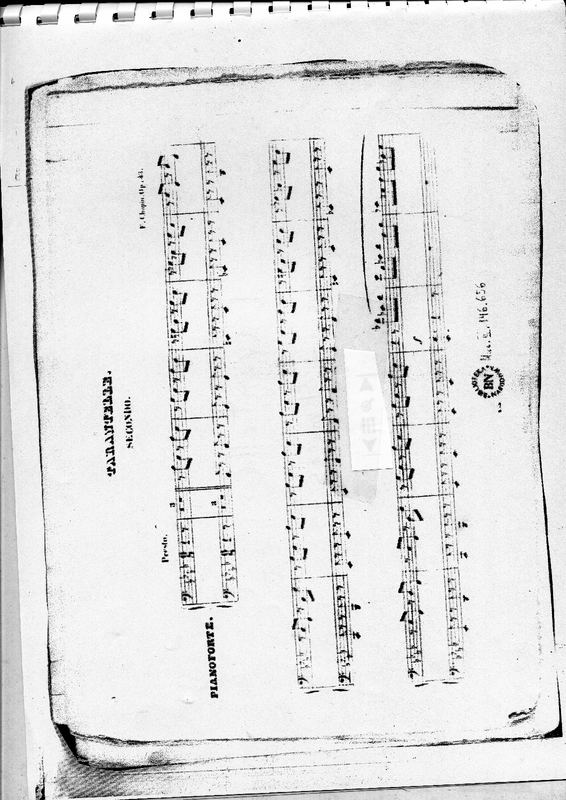 TARANTELLE.
SECONDO.
F. Chopin, Op. 43.
Presto.
PIANOFORTE.
3
3
BN
146.656